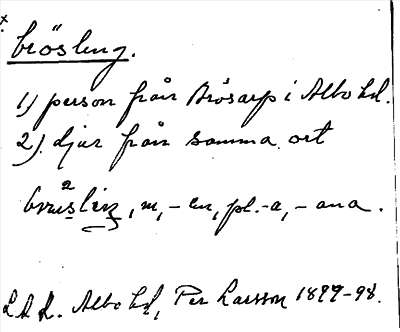 brösling.
1) person från Brösarp i Albo hd.
2) djur från samma ort
brus²liŋ, m, -en, pl. -a, -ana.
L.A.L. Albo hd, Per Larsson 1897-98.